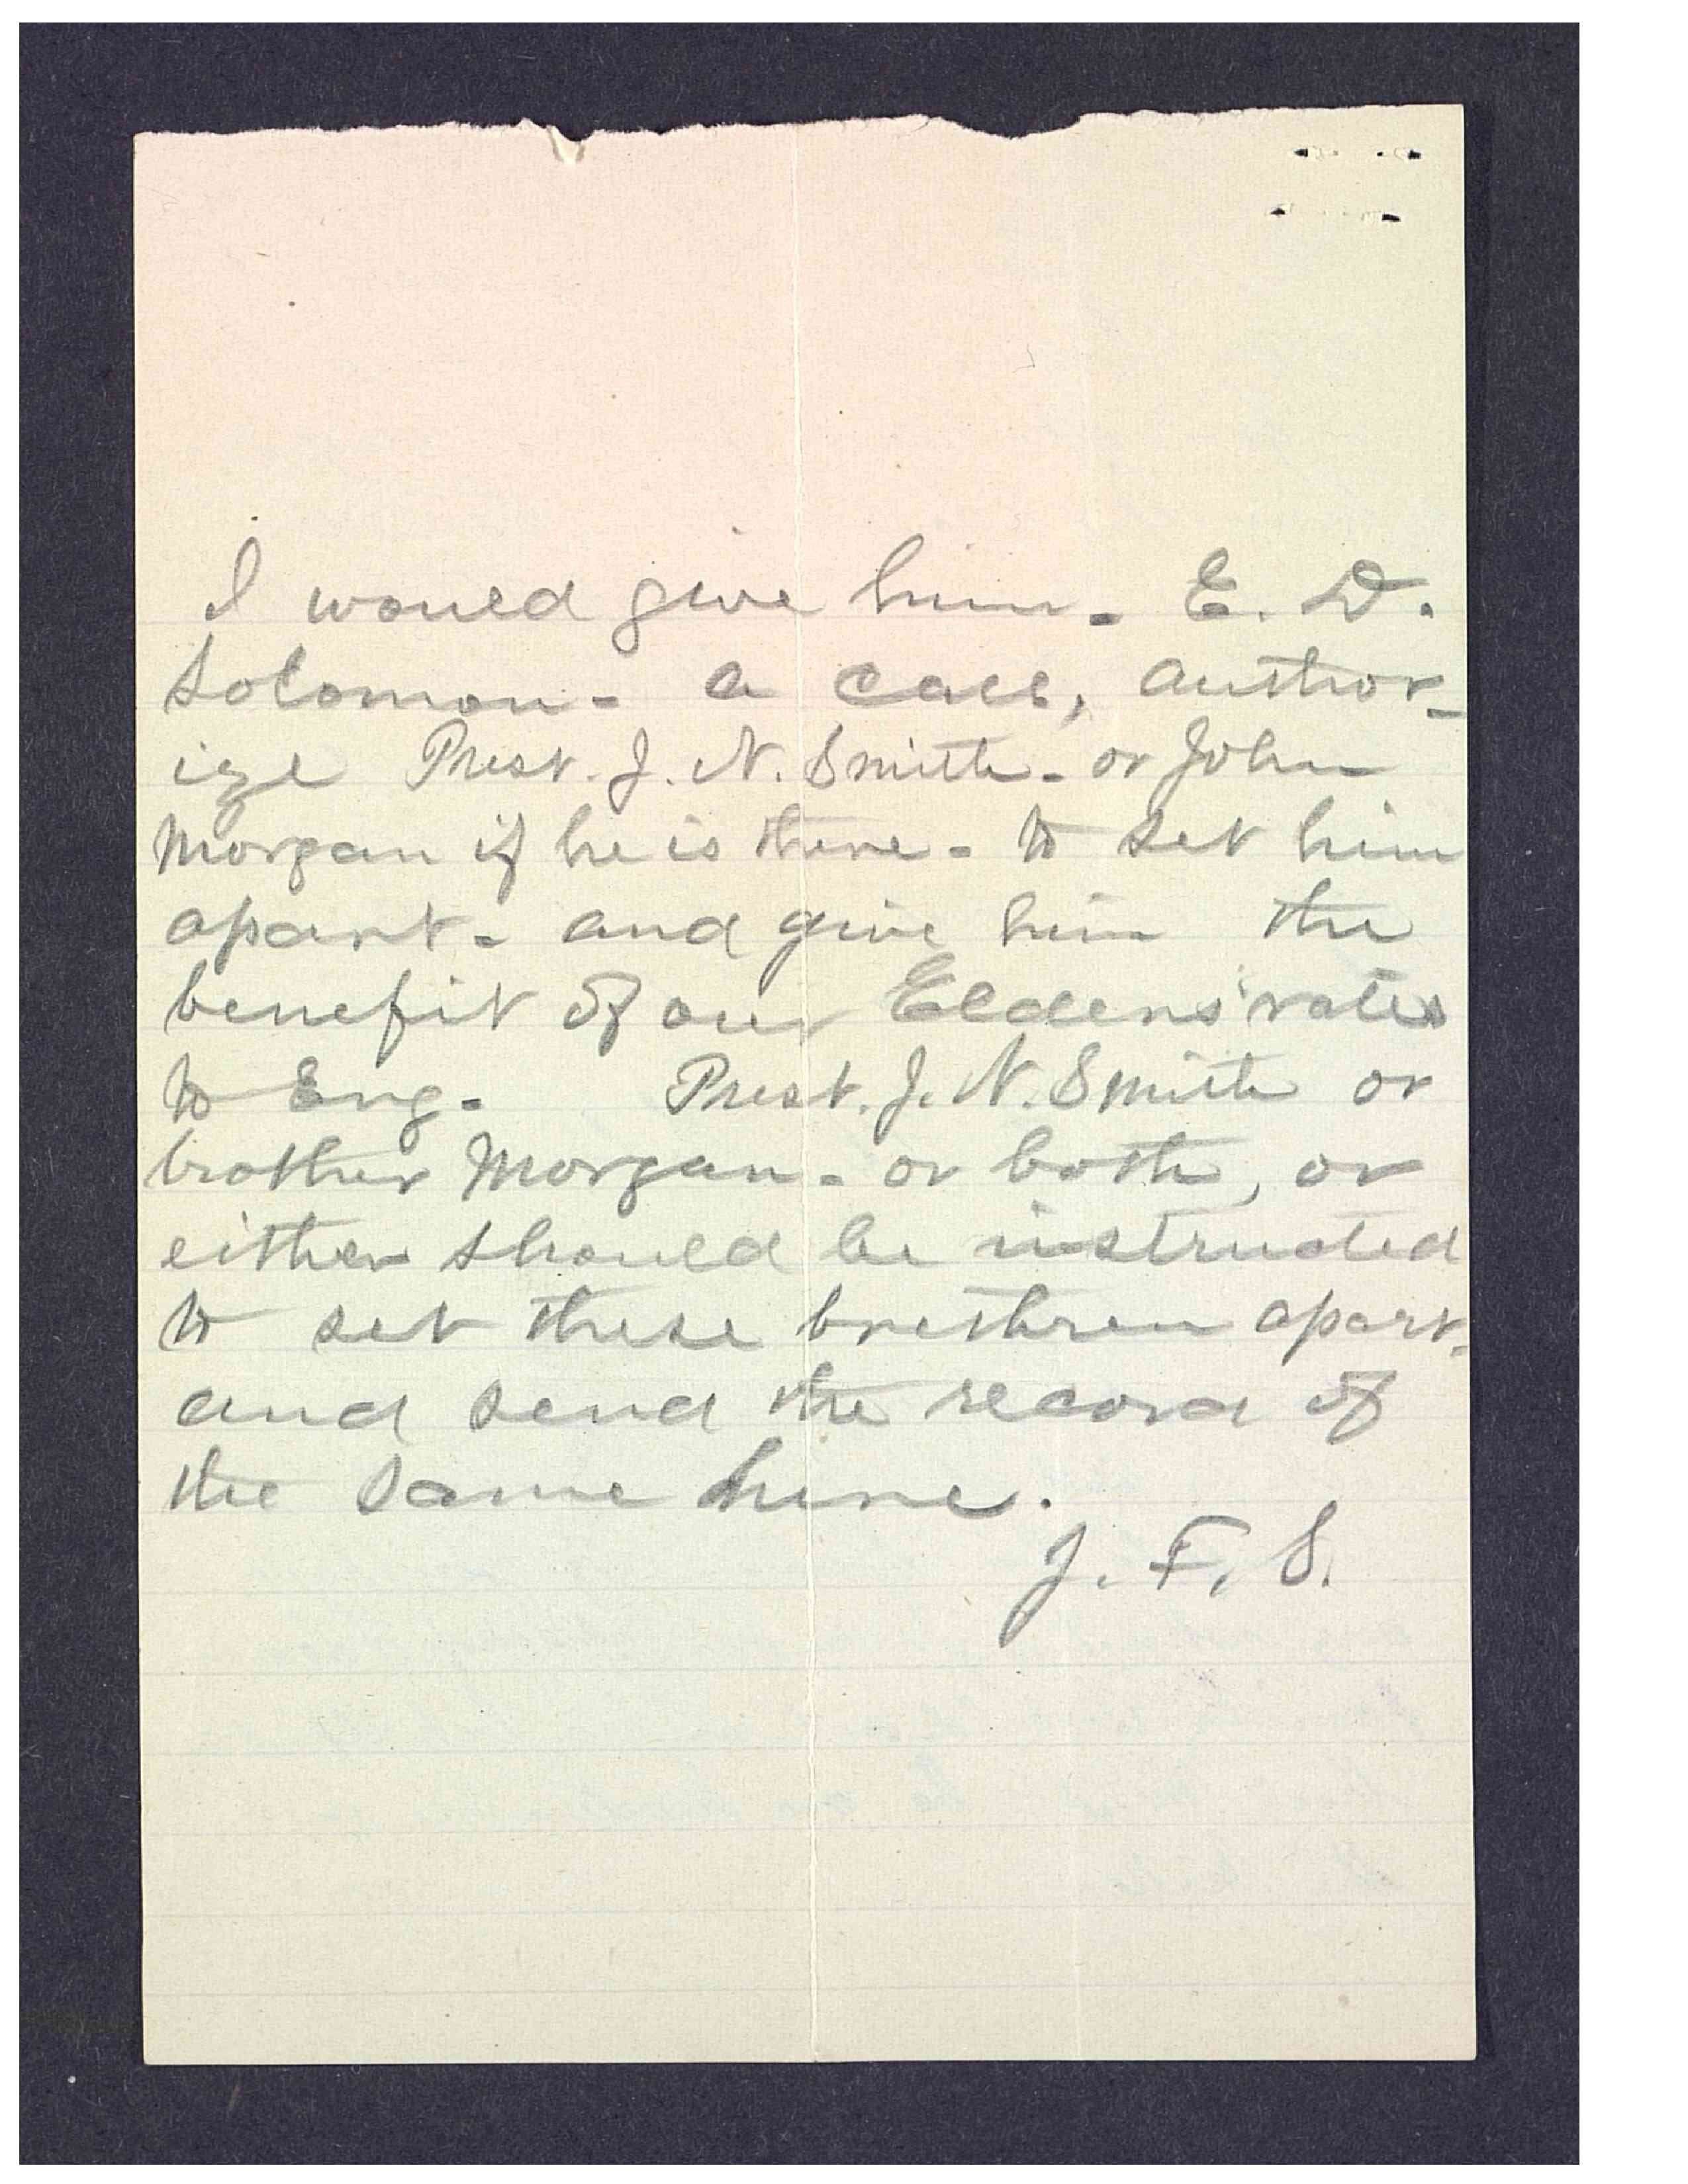 I would give him - E. D.
Solomon - a call, author-
ize Prest. J. N. Smith - or John
Morgan if he is there - to set him
apart - and give him the
benefit of our Elders' rates
to Eng. - Prest. J. N. Smith or
brother Morgan - or both, or
either should be instructed
to set these brethren apart -
and send the record of
the same here.
J. F. S.